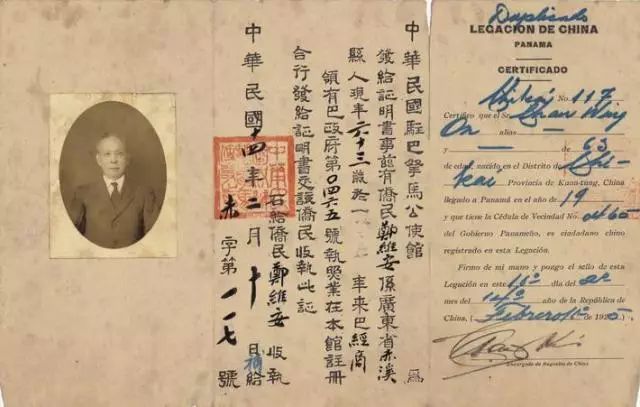 中華民國駐巴拏馬公使館 為
發給証明書事茲有僑民鄭維安係廣東省赤溪
縣人現年六十三歲於一九 年來巴經商
領有巴政府第〇四六五號執照業在本館註冊
合行發給証明書交該僑民收執此証
右給僑民鄭維安 收執
中華民國十四年二月十日補給
赤字第一一七號
Duplicado
LEGACION DE CHINA
PANAMA
CERTIFICADO
No. 117
Certifico que el Sr. Chan Way
On años
de 63
de edad, nacido en el Distrito de Chi-
kai Provincia de Kuang-tung, China
llegado a Panamá en el año de 19
y que tiene la Cédula de Vecindad No.
del Gobierno Panameño, es ciudadano chino
registrado en esta Legación.
Firmo de mi mano y pongo el sello de esta
Legación en este 10º día del 2º
mes del 14º año de la República de
China, (Febrero 10 de 1925)
Encargado de Negocios de China